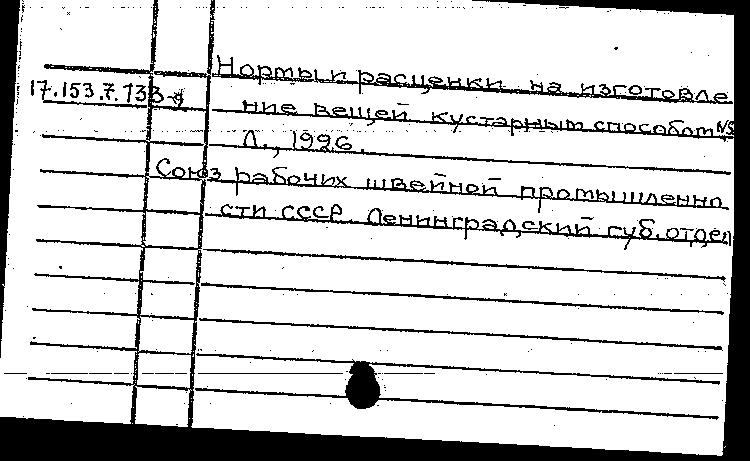 Нормы и расценки на изготовле
17.153.7.133-д
ние вещей кустарным способом №5
Л., 1926.
Союз рабочих швейной промышленно
сти СССР. Ленинградский губ. отдел